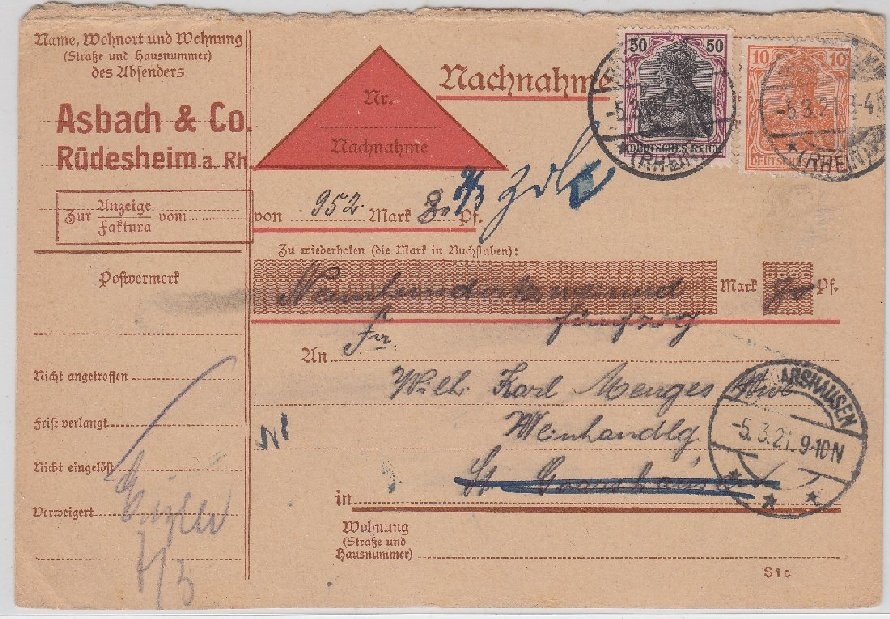 Name, Wohnort und Wohnung
(Straße und Hausnummer)
des Absenders
Asbach & Co.
Rüdesheim a. Rh.
Zur Anzeige
Faktura vom
Postvermerk
Nicht angetroffen
Frist verlangt
Nicht eingelöst
Verweigert
7/3
Nr.
Nachnahme
Nachnahme
50 50
DEUTSCHES REICH
10 10
DEUTSCHES
-5.3.
(RHEIN)
-5.3.21.
(RHEIN)
von 952 Mark Pf.
Zu wiederholen (die Mark in Buchstaben):
Neunhundertzweiund Mark Pf.
fünfzig
An Fa
Wilh. Karl Menges
Weinhandlg
St. Goarshausen
in
ARSHAUSEN
-5.3.21. 9-10N
Wohnung
(Straße und
Hausnummer)